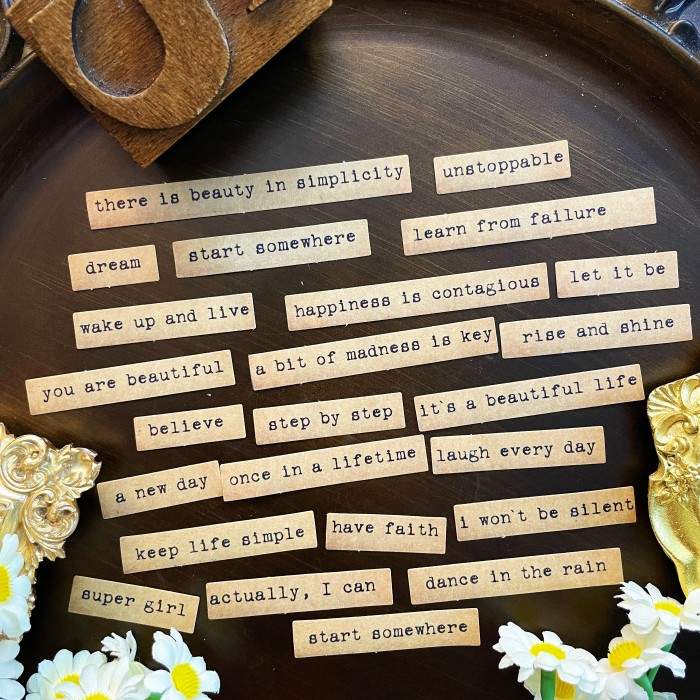 there is beauty in simplicity
unstoppable
dream
start somewhere
learn from failure
wake up and live
happiness is contagious
let it be
you are beautiful
a bit of madness is key
rise and shine
believe
step by step
it`s a beautiful life
a new day
once in a lifetime
laugh every day
keep life simple
have faith
i won`t be silent
super girl
actually, I can
dance in the rain
start somewhere